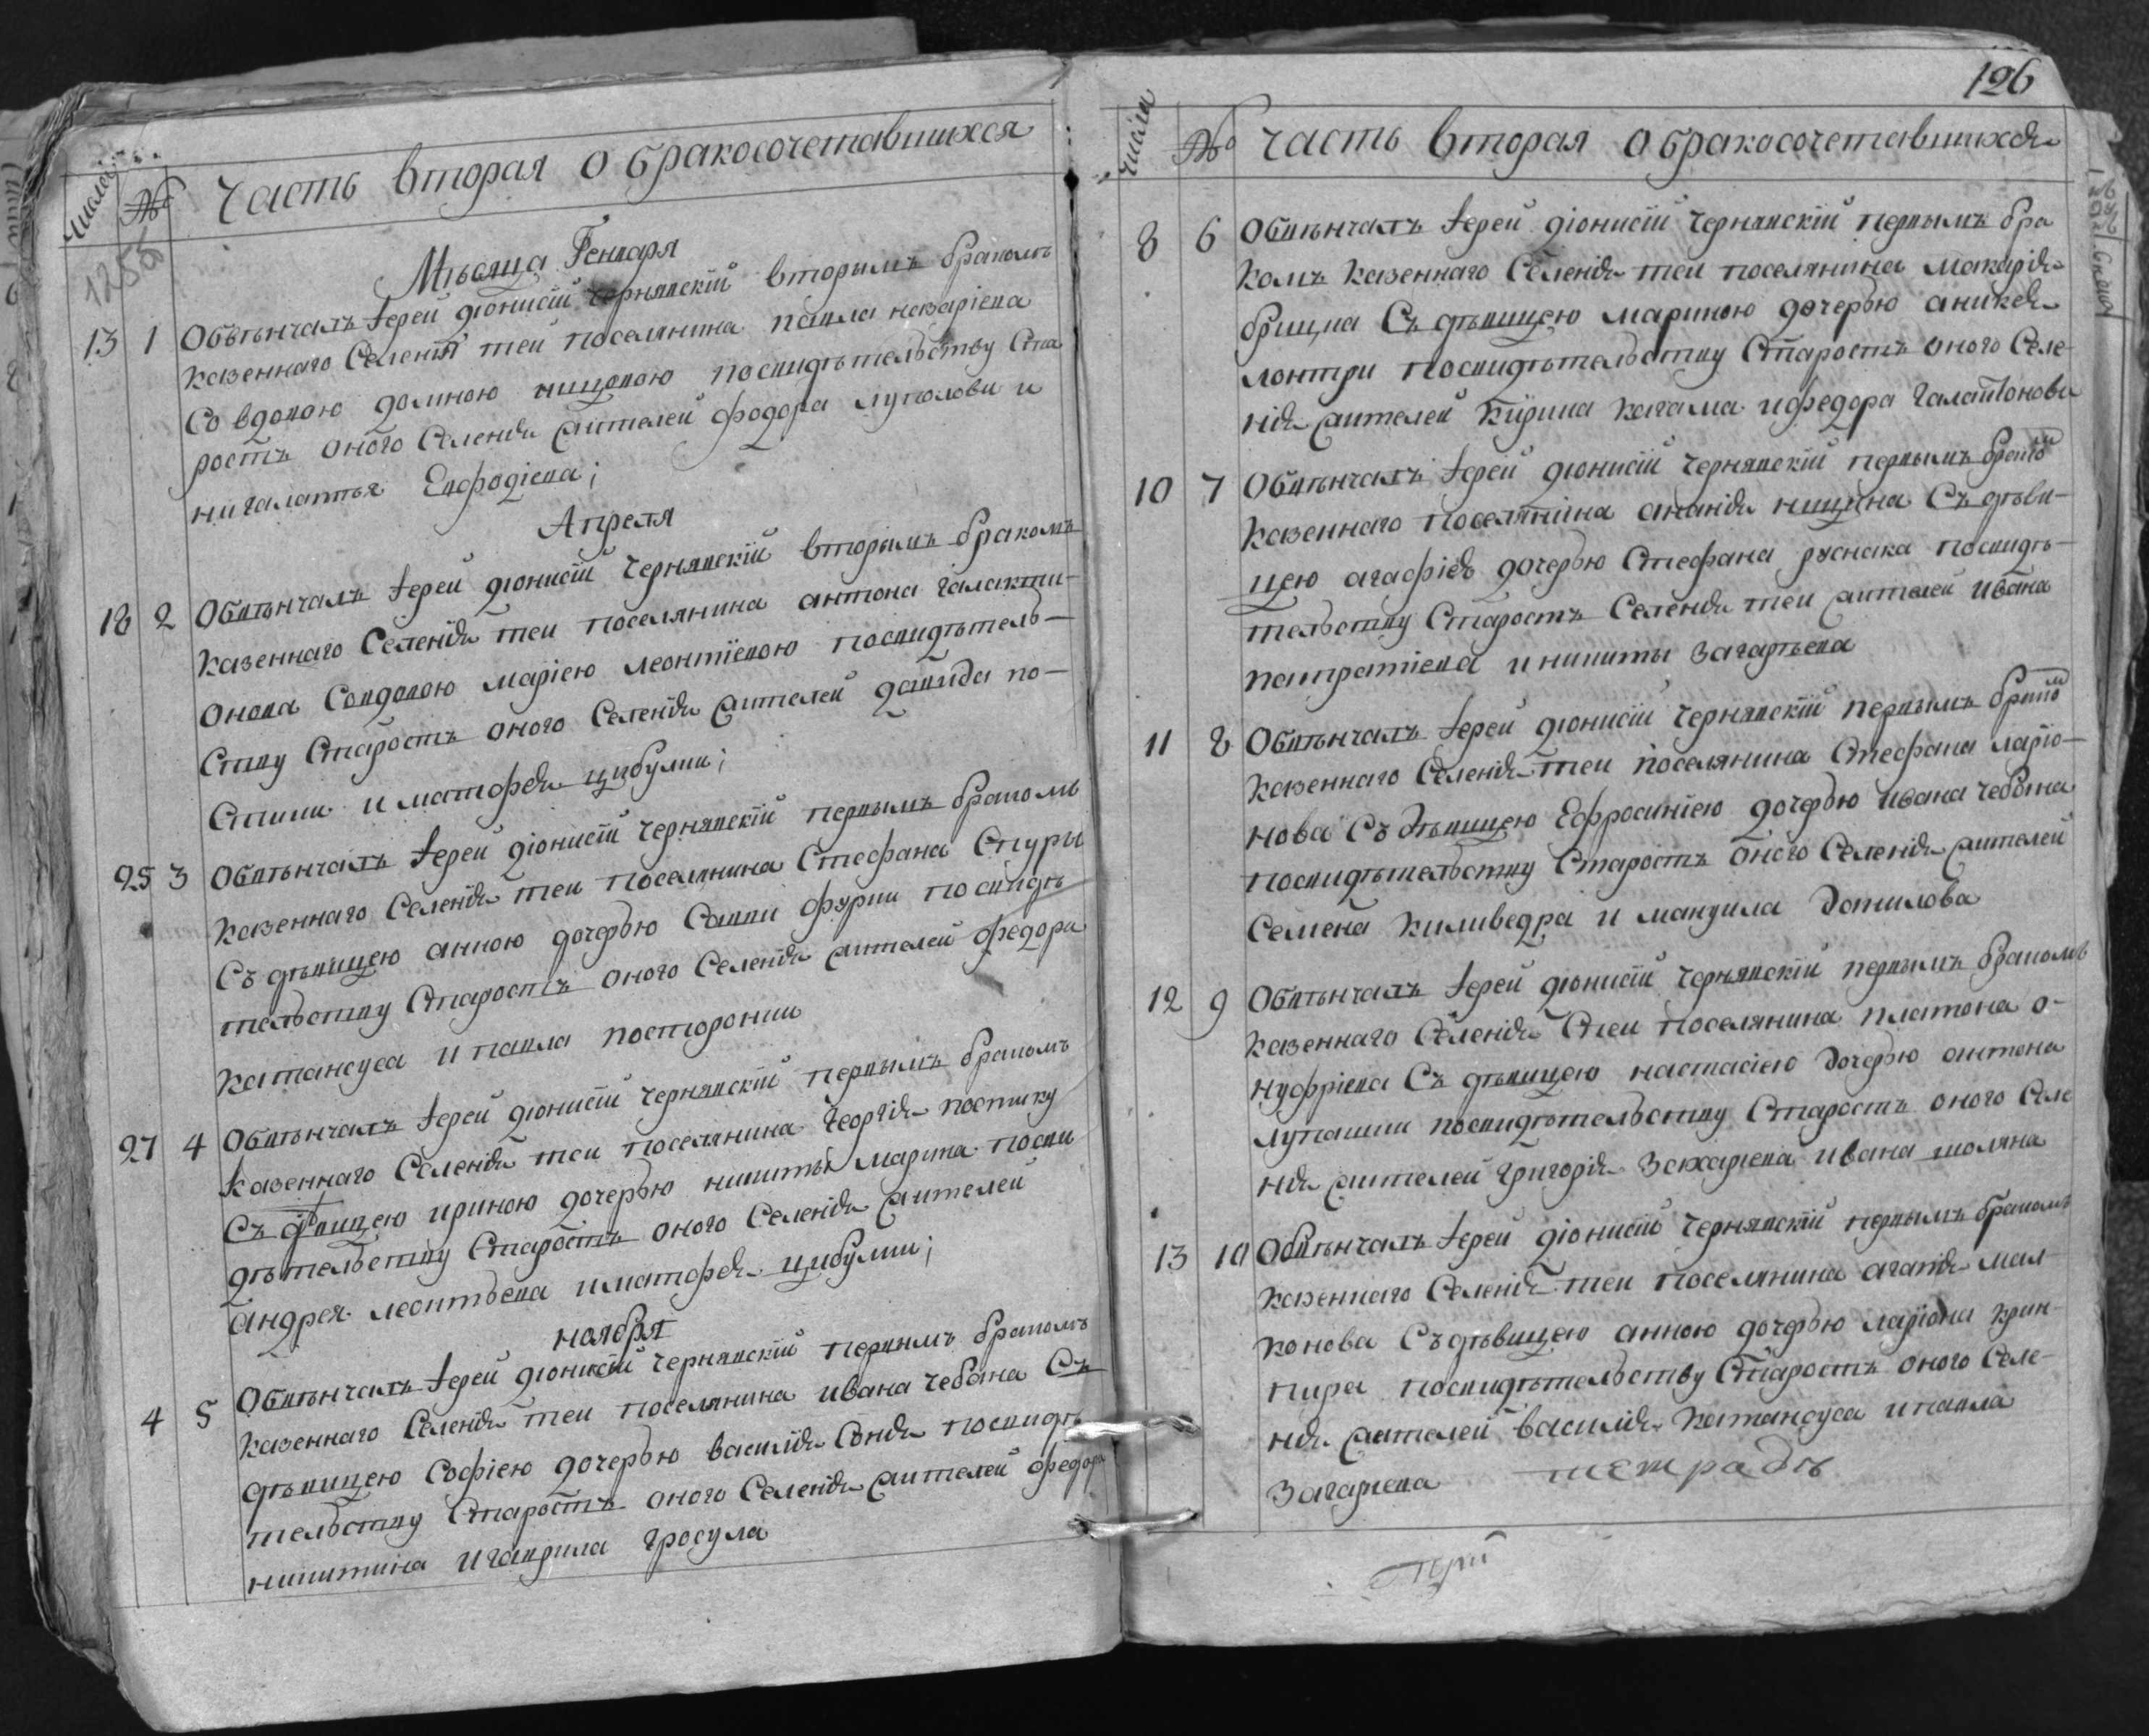 числа № Часть вторая о бракосочетавшихся
Мѣсяца Генваря
13 1 Обвѣнчалъ Іерей діонисій Чернявскій вторымъ бракомъ
казеннаго Селенія теи поселянина павла назаріева
Со вдовою домною нищовою посвидѣтельству Ста
ростъ оного Селенія жителей фодора луполови и
Апреля
18 2 Обвѣнчалъ Іерей діонисій Чернявскій вторымъ бракомъ
казеннаго Селенія теи поселянина антона галакти-
онова Совдовою маріею леонтіевою посвидѣтель-
Ству Старостъ оного Селенія жителей давида по-
и матофея цибулми;
25 3 Обвѣнчалъ Іерей діонисій Чернявскій первымъ бракомъ
казеннаго Селенія теи поселянина Стефана Скуры
Съ дѣвицею анною дочерью Савви фурни посвидѣ
тельству Старостъ оного Селенія жителей федора
катансуса и павла посторонни
27 4 Обвѣнчалъ Іерей діонисій Чернявскій первымъ бракомъ
казеннаго Селенія теи поселянина георгія постику
Съ дѣвицею ириною дочерью никиты марина посви
дѣтельству Старостъ оного Селенія жителей
андрея леонтьева и матофея цибулми;
ноября
4 5 Обвѣнчалъ Іерей діонисій Чернявскій первымъ бракомъ
казеннаго Селенія теи поселянина ивана чебана Съ
дѣвицею Софіею дочерью василія Сандя посвидѣ
тельству Старостъ оного Селенія жителей федора
никитина и гаврила гросула
126
числа № Часть вторая о бракосочетавшихся
8 6 Обвѣнчалъ Іерей діонисій Чернявскій первымъ бра
комъ казеннаго Селенія теи поселянина макарія
Съ дѣвицею мариною дочерью аникея
лонтри посвидѣтельству Старостъ оного Селе-
нія жителей и федора галатонови
10 7 Обвѣнчалъ Іерей діонисій Чернявскій первымъ бракомъ
казеннаго поселянина ананія нищина Съ дѣви-
цею агафіею дочерью Стефана руснака посвидѣ-
тельству Старостъ Селенія теи жителей ивана
панкратіева и никиты загарьева
11 8 Обвѣнчалъ Іерей діонисій Чернявскій первымъ бракомъ
казеннаго Селенія теи поселянина Стефана ларіо-
нова Съ дѣвицею Ефросиніею дочерью ивана чебана
посвидѣтельству Старостъ оного Селенія жителей
Семена киливедра и мануила данилова
12 9 Обвѣнчалъ Іерей діонисій Чернявскій первымъ бракомъ
казеннаго Селенія теи поселянина платона о-
нуфріева Съ дѣвицею настасіею дочерью антона
лупашки посвидѣтельству Старостъ оного Селе
нія жителей григорія захаріева ивана моляна
13 10 Обвѣнчалъ Іерей діонисій Чернявскій первымъ бракомъ
казеннаго Селенія теи поселянина агапія мал
конова Съ дѣвицею анною дочерью ларіона крин-
пира посвидѣтельству Старостъ оного Селе-
нія жителей василія катансуса и павла
загариева тетрадь